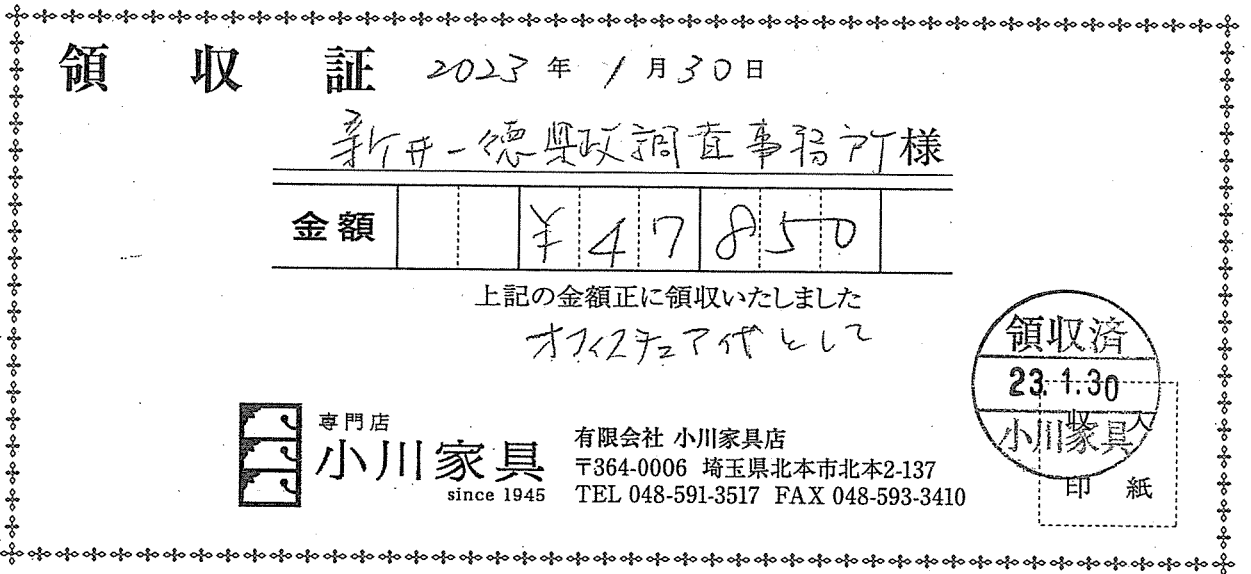 領収証 2023年1月30日
新井一徳県政調査事務所様
金額 ¥47850
上記の金額正に領収いたしました
オフィスチェア代として
領収済
23.1.30
小川家具
収入
印紙
専門店
小川家具
since 1945
有限会社 小川家具店
〒364-0006 埼玉県北本市北本2-137
TEL 048-591-3517 FAX 048-593-3410